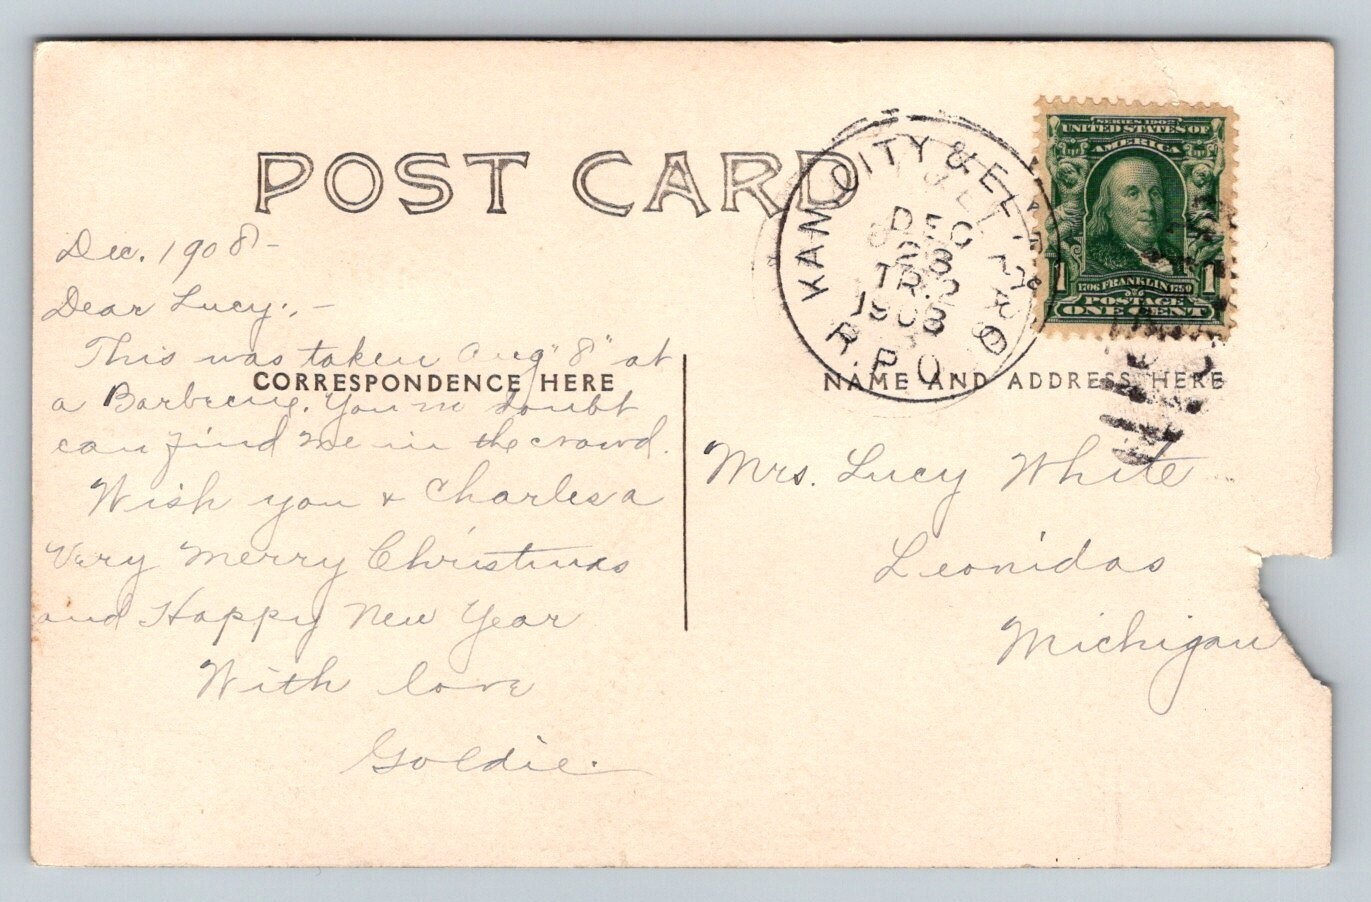 POST CARD
KAN. CITY & EL
R.P.O.
DEC
23
TR.2
1908
SERIES 1902
UNITED STATES OF
AMERICA
1 1
1706 FRANKLIN 1790
POSTAGE
ONE CENT
CORRESPONDENCE HERE
NAME AND ADDRESS HERE
Dec. 1908 -
Dear Lucy:, -
This was taken Aug "8" at
a Barbecue. You no doubt
can find me in the crowd.
Wish you & Charles a
Very Merry Christmas
and Happy New Year
With love
Goldie.
Mrs. Lucy White
Leonidas
Michigan